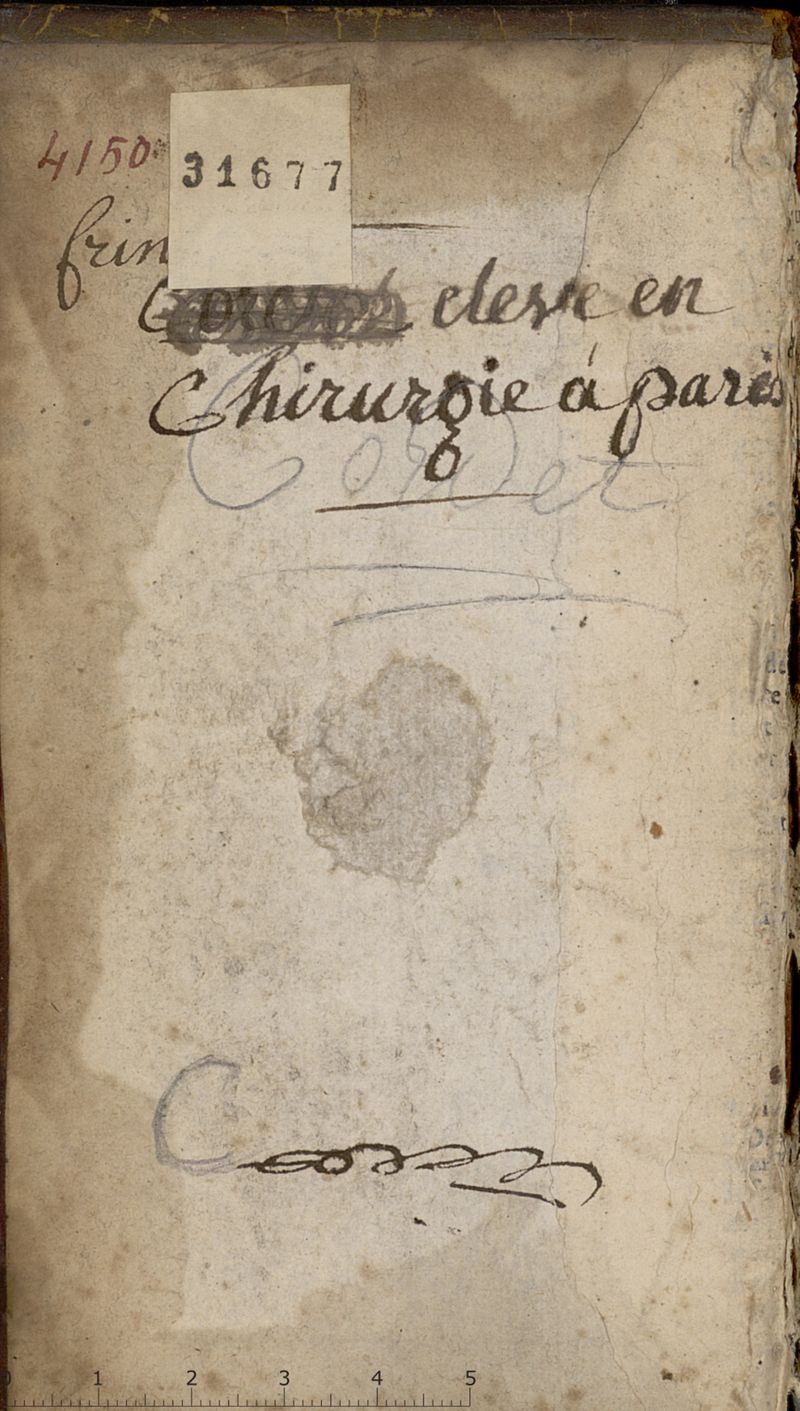 4150
31677
frin
eleve en
Chirurgie á paris
Coodet
C
0 1 2 3 4 5